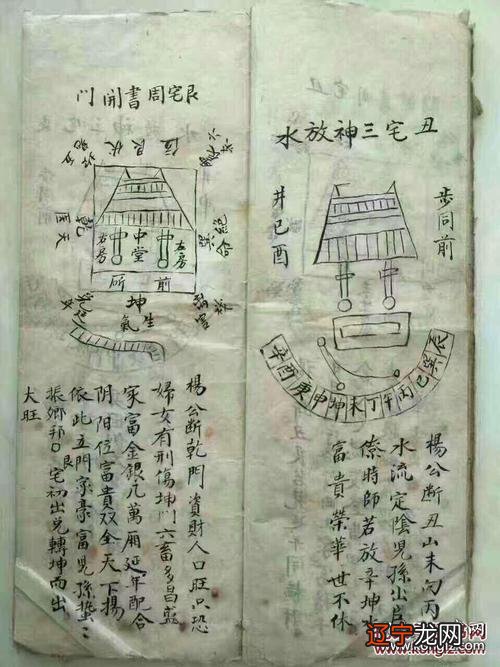 丑宅三神放水
步同前
井巳酉
中 中
辰巽巳丙午丁未坤申庚酉辛
楊公断丑山未向丙
水流定陰児孫出
僚時師若放辛坤水
富貴榮華世不休
艮宅周書開門
位艮伏
乾天医
左房
中堂
右房
前所
坤
生氣
楊公断乾門資財人口旺只恐
婦女有刑傷坤門六畜多昌盛
家富金銀几萬厢延年配合
阴阳位富貴双全天下揚
依此五門家豪富児孫蛰〻
振鄉邦艮宅初出兑轉坤而出
大旺
辽宁龙网